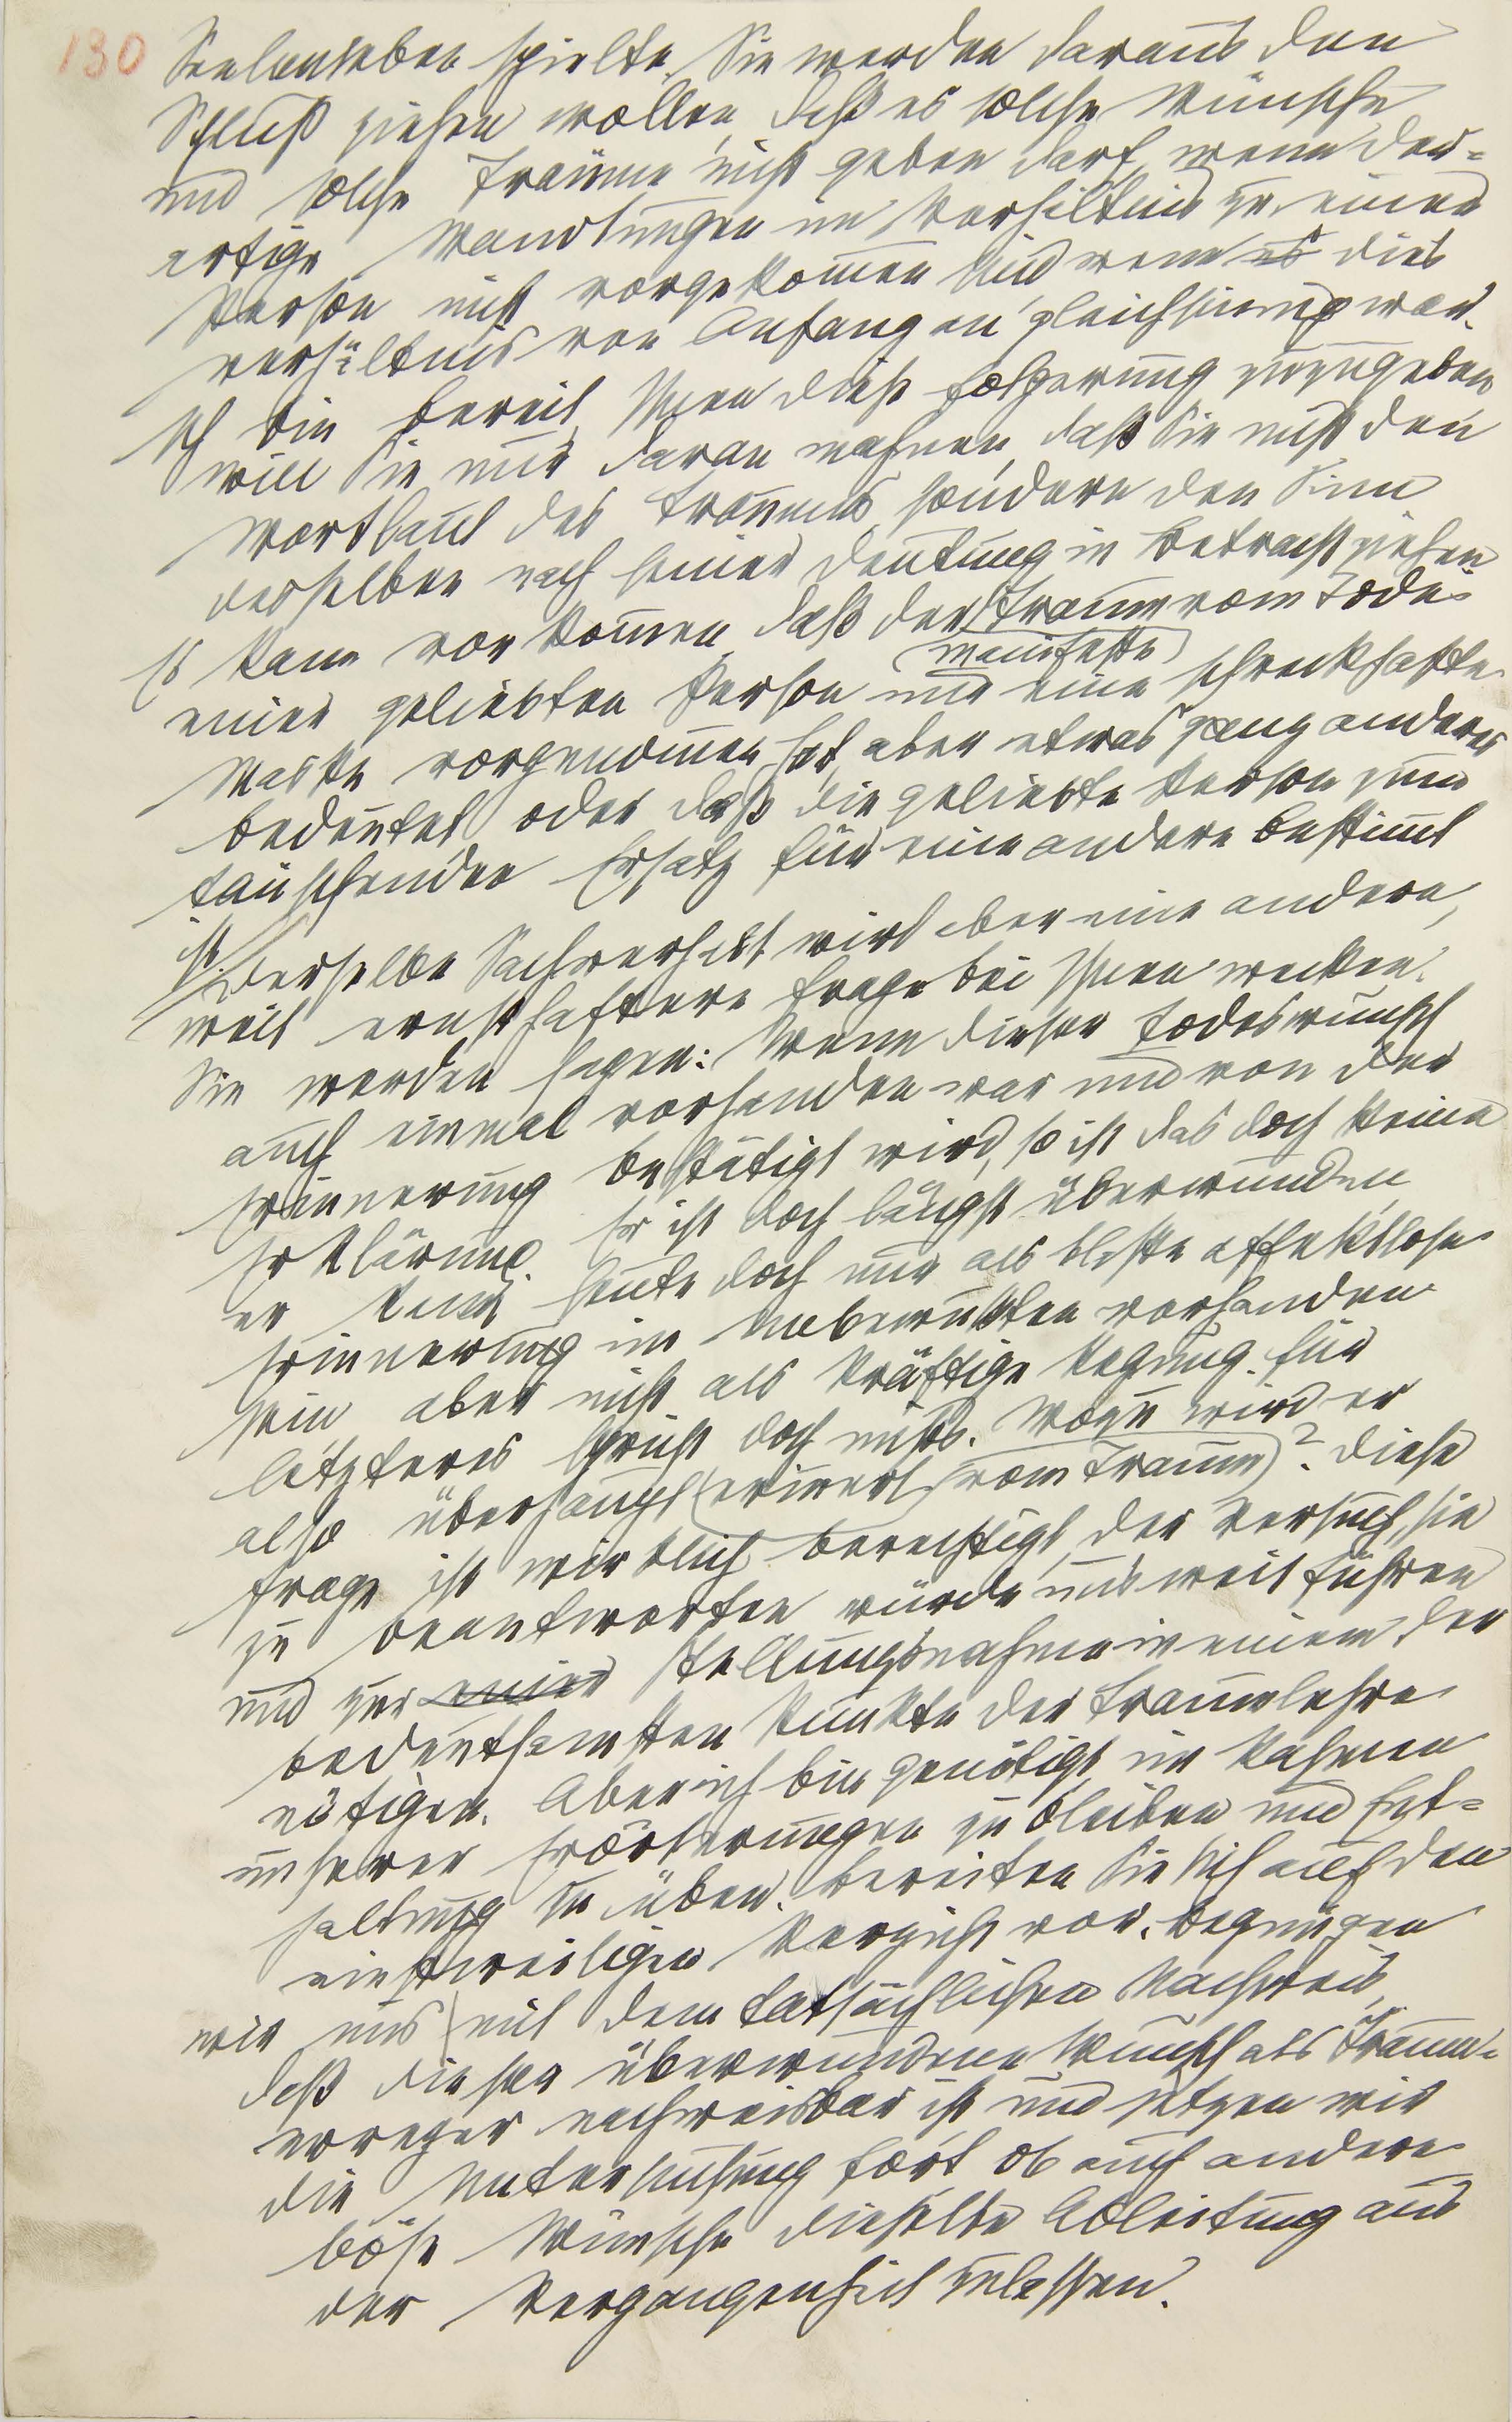 130
Seelenleben spielte. Sie werden daraus den
Schluß ziehen wollen, daß es solche Wünsche
und solche Träume nicht geben darf, wenn der=
artige Wandlungen im Verhältnis zu einer
Person nicht vorgekommen sind wenn es dies
verhältnis von Anfang an gleichsinnig war.
Ich bin bereit, Ihnen diese Folgerung zuzugeben
will Sie nur daran mahnen, daß Sie nicht den
Wortlaut des Traumes, sondern den Sinn
desselben nach seiner Deutung in Betracht ziehen
Es kann vorkommen, daß der Traum vom Tode
manifeste
einer geliebten Person nur eine schreckhafte
Maske vorgenommen hat, aber etwas ganz anderes
bedeutet oder daß die geliebte Person zum
täuschenden Ersatz für eine andere bestimmt
ist.
Derselbe Sachverhalt wird aber eine andere,
weit ernsthaftere Frage bei Ihnen wecken.
Sie werden sagen: Wenn dieser Todeswunsch
auch einmal vorhanden war und von der
Erinnerung bestätigt wird, so ist das doch keine
Erklärung. Er ist doch längst überwunden,
er kann heute doch nur als bloße affektlose
Erinnerung im Unbewußten vorhanden
sein aber nicht als kräftige Regung. Für
letzteres spricht doch nichts. Wozu wird er
also überhaupt erinnert vom Traum? Diese
Frage ist wirklich berechtigt, der Versuch, sie
zu beantworten würde uns weit führen
und zur einer Stellungsnahme in einem der
bedeutsamsten Punkte der Traumlehre
nötigen. Aber ich bin genötigt, im Rahmen
unserer Erörterungen zu bleiben und Ent=
haltung zu üben. Bereiten Sie sich auf den
einstweiligen Verzicht vor. Begnügen
wir uns mit dem tatsächlichen Nachweis,
daß dieser überwundene Wunsch als Traum=
erreger nachweisbar ist und setzen wir
die Untersuchung fort, ob auch andere
böse Wünsche dieselbe Ableitung aus
der Vergangenheit zulassen.